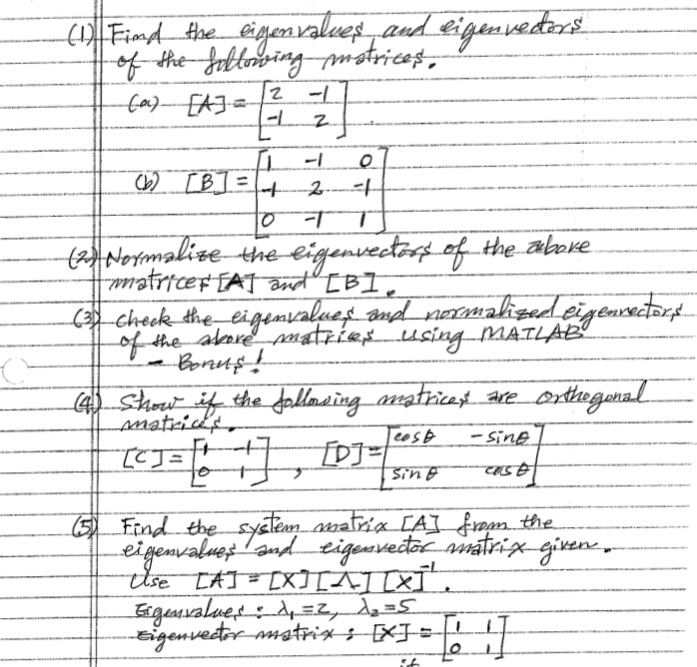 (1) Find the eigenvalues and eigenvectors
of the following matrices.
(a) [A] = [2 -1
-1 2]
(b) [B] = [1 -1 0
-1 2 -1
0 -1 1]
(2) Normalize the eigenvectors of the above
matrices [A] and [B].
(3) check the eigenvalues and normalized eigenvectors
of the above matrices using MATLAB
- Bonus!
(4) Show if the following matrices are orthogonal
matrices.
[C] = [1 -1
0 1] , [D] = [cosθ -sinθ
sinθ cosθ]
(5) Find the system matrix [A] from the
eigenvalues and eigenvector matrix given.
Use [A] = [X][Λ][X]⁻¹.
Eigenvalues : λ₁ = 2, λ₂ = 5
Eigenvector matrix : [X] = [1 1
0 1]